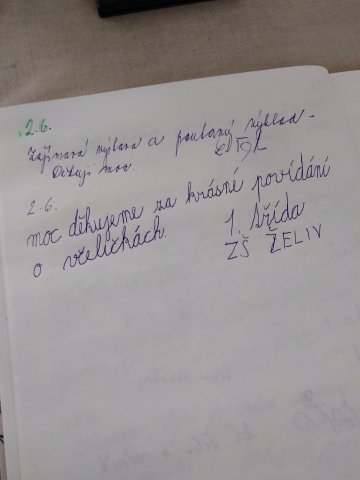 2.6.
Zajímavá výstava a poutavý výklad -
Děkuji moc.
2.6.
moc děkujeme za krásné povídání
o včeličkách.
1. třída
ZŠ ŽELIV